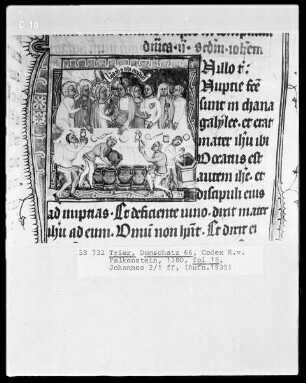 C 10
d̄nica ii. scdm iohem
In illo t̄:
Nuptie fc̄e
sunt in chana
galylee. et erat
mater ihu ibi
Vocatus est
autem ihc. et
discipuli eius
ad nuptias. Et deficiente uino. dixit mater
ihu ad eum. Vinum non hn̄t. Et dixit ei
SB 732 Trier, Domschatz 66, Codex K.v.
Falkenstein, 1380, fol 18,
Johannes 2/1 ff, (Aufn.1935)